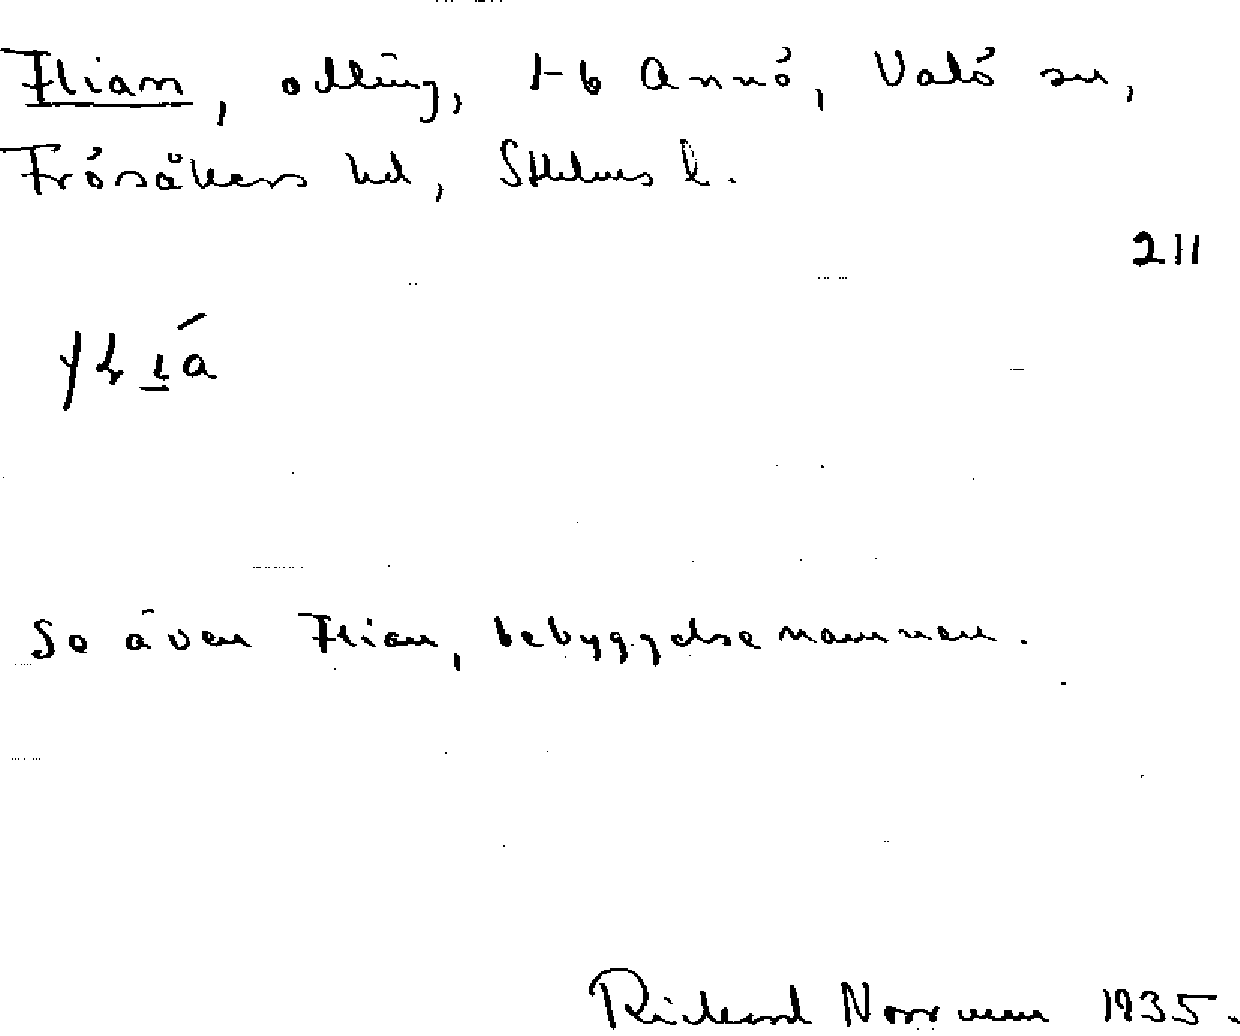 Flian, odling, t-b Annö, Vätö sn,
Frösåkers hd, Sthlms l.
211
Se även Flian, bebyggelsenamnen.
Rickard Norrman 1935.